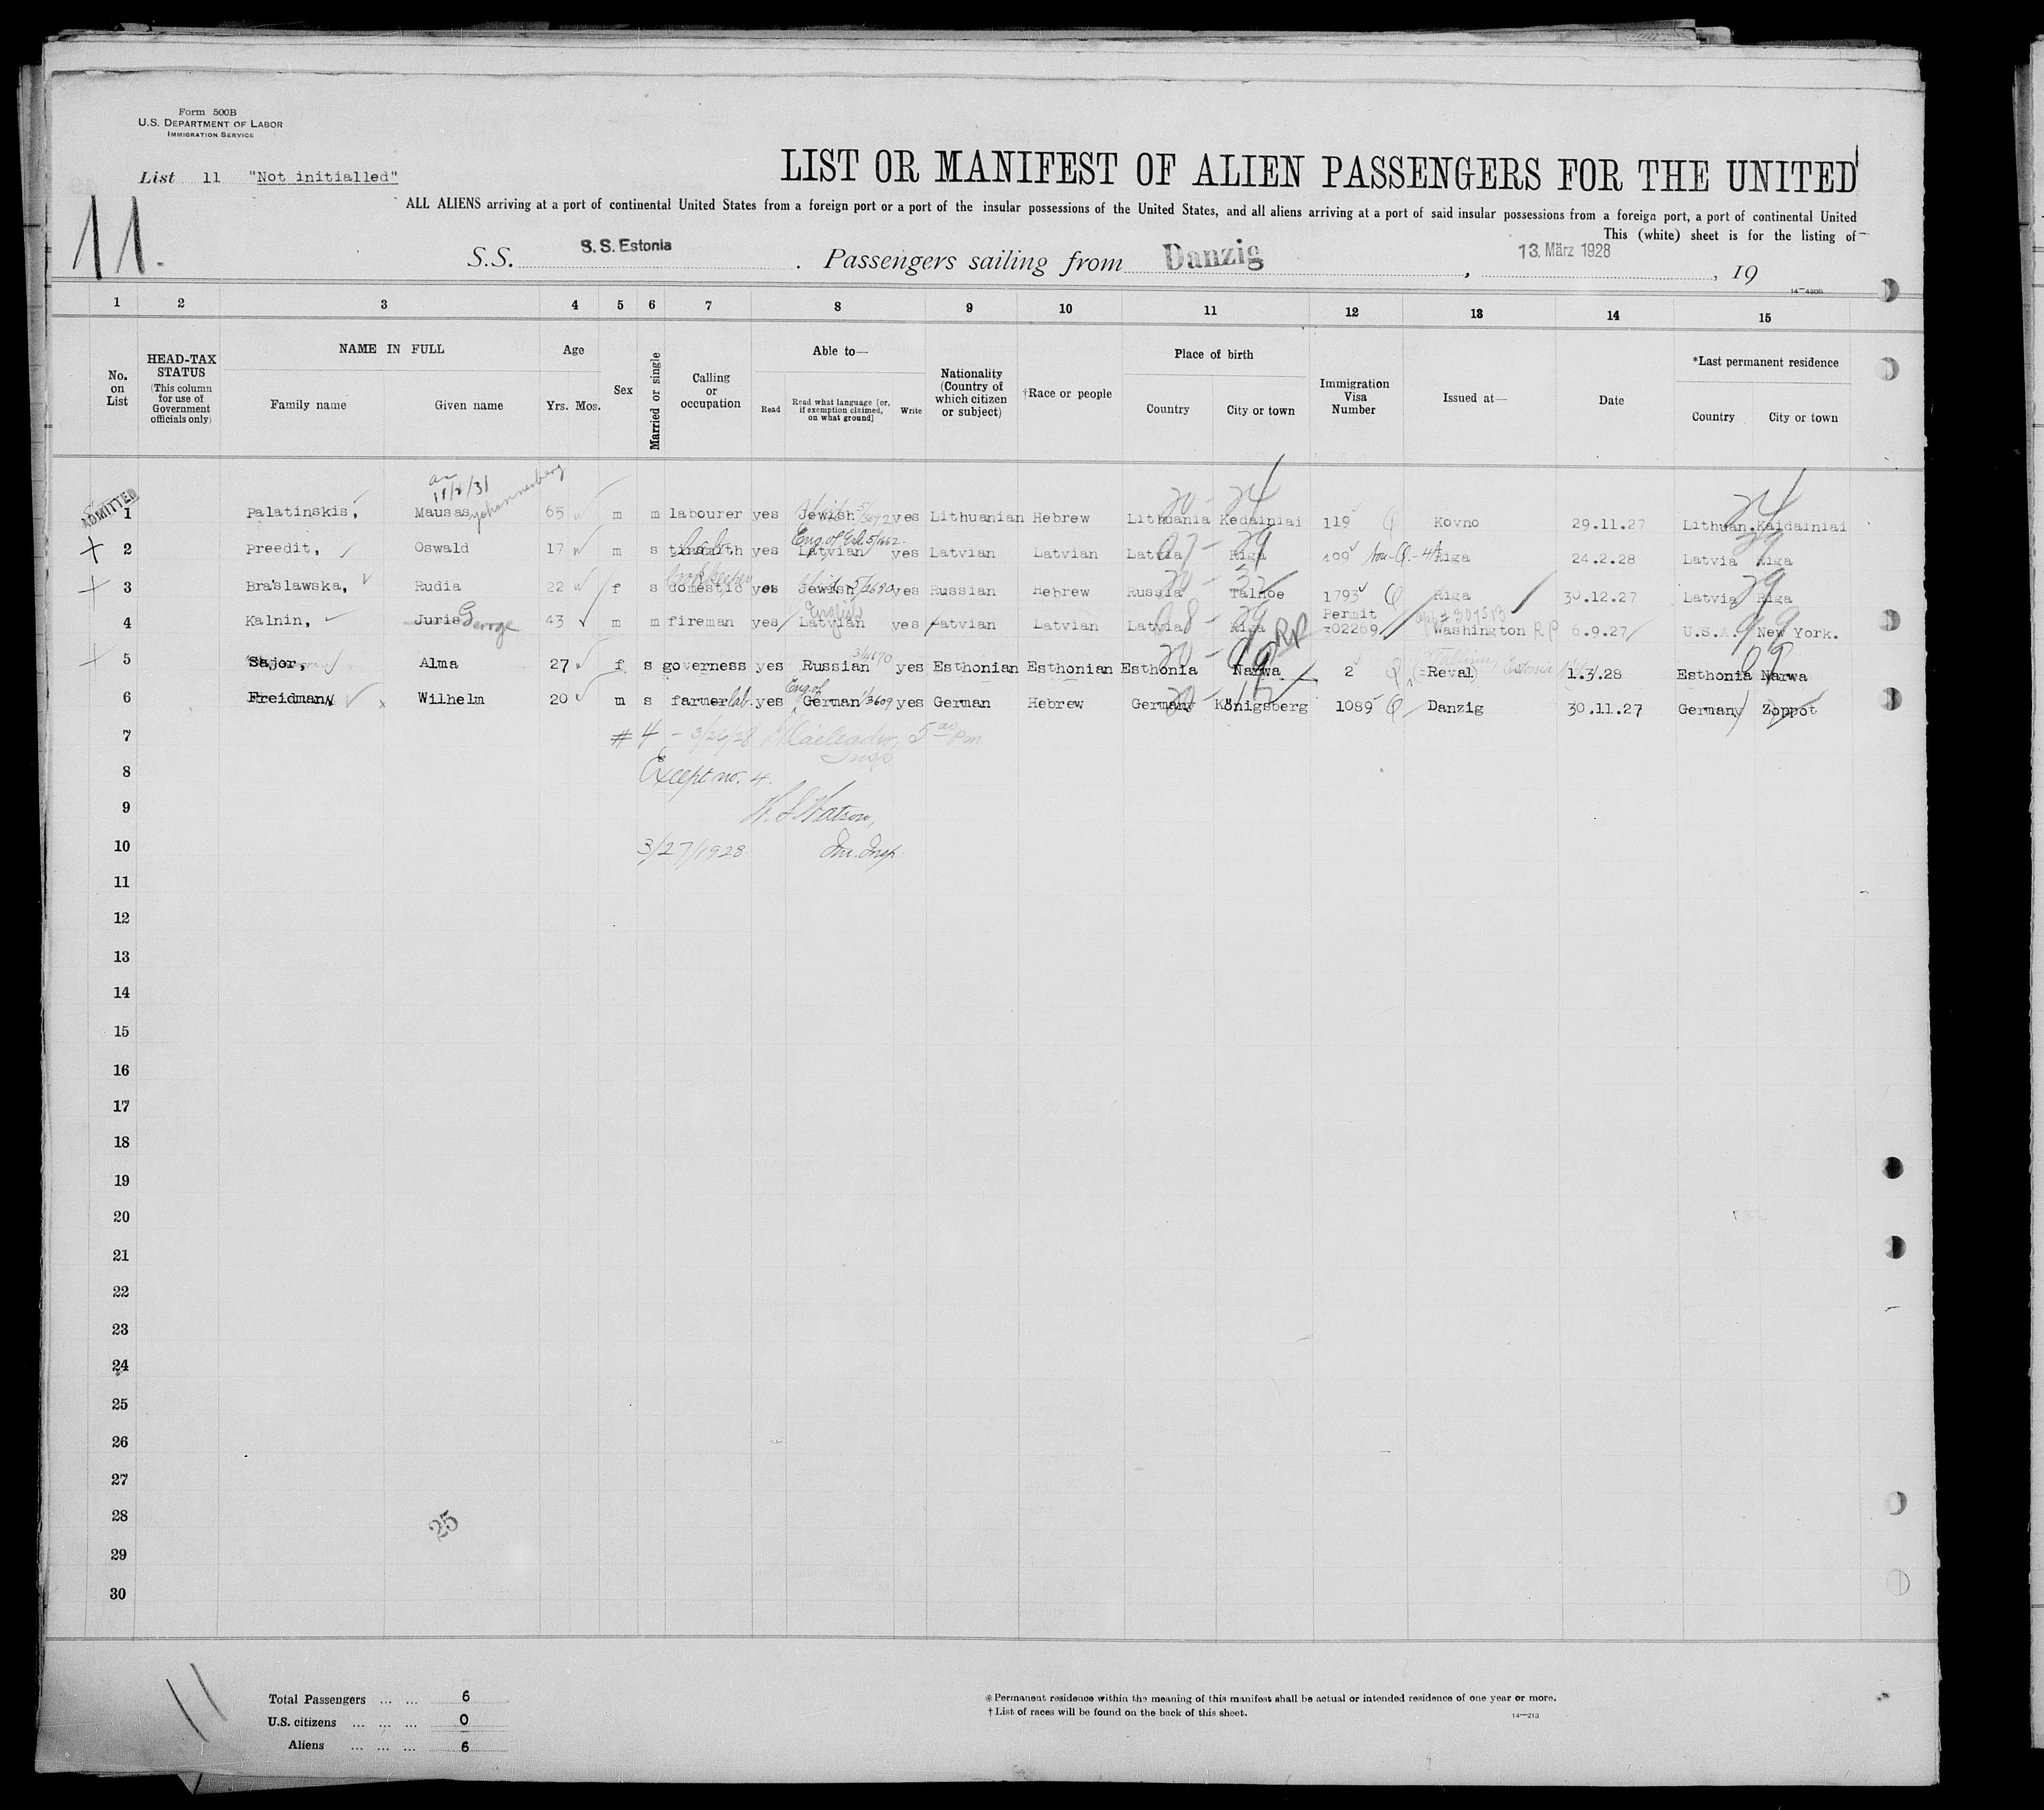 Form 500B
U.S. DEPARTMENT OF LABOR
IMMIGRATION SERVICE
List 11 "Not initialled"
11.
LIST OR MANIFEST OF ALIEN PASSENGERS FOR THE UNITED
ALL ALIENS arriving at a port of continental United States from a foreign port or a port of the insular possessions of the United States, and all aliens arriving at a port of said insular possessions from a foreign port, a port of continental United
This (white) sheet is for the listing of
S.S. S.S. Estonia. Passengers sailing from Danzig, 13. März 1928, 19
14—4306
1 2 3 4 5 6 7 8 9 10 11 12 13 14 15
No. on List
HEAD-TAX STATUS (This column for use of Government officials only)
NAME IN FULL
Family name Given name
Age
Yrs. Mos.
Sex
Married or single
Calling or occupation
Able to—
Read
Read what language [or, if exemption claimed, on what ground]
Write
Nationality (Country of which citizen or subject)
†Race or people
Place of birth
Country City or town
Immigration Visa Number
Issued at—
Date
*Last permanent residence
Country City or town
11/2/31 Johannesberg
ADMITTED
1 Palatinskis, Mausas 65 m m labourer yes Jewish yes Lithuanian Hebrew Lithuania Kedainiai 119 Kovno 29.11.27 Lithuan. Kaidainiai
20 - 24 24
2 Preedit, Oswald 17 m s tinsmith yes Latvian yes Latvian Latvian Latvia Riga 499 Riga 24.2.28 Latvia Riga
3 Braslawska, Rudia 22 f s domestic yes Jewish yes Russian Hebrew Russia Talhoe 1793 Riga 30.12.27 Latvia Riga
bookkeeper
4 Kalnin, Juris George 43 m m fireman yes Latvian yes Latvian Latvian Latvia Riga Permit 302269 Washington RP 6.9.27 U.S.A. New York.
English
5 Sajor, Alma 27 f s governess yes Russian yes Esthonian Esthonian Esthonia Narwa 2 (=Reval) 1.3.28 Esthonia Narwa
6 Freidmann Wilhelm 20 m s farmer lab. yes German yes German Hebrew Germany Königsberg 1089 Danzig 30.11.27 Germany Zoppot
7 #4 - 3/26/28
8 Except no. 4.
9 Watson,
10 3/27/1928 Im. Insp.
11
12
13
14
15
16
17
18
19
20
21
22
23
24
25
26
27
28
25
29
30
11
Total Passengers ... ... 6
U.S. citizens ... ... ... 0
Aliens ... ... ... 6
*Permanent residence within the meaning of this manifest shall be actual or intended residence of one year or more.
†List of races will be found on the back of this sheet.
14—213